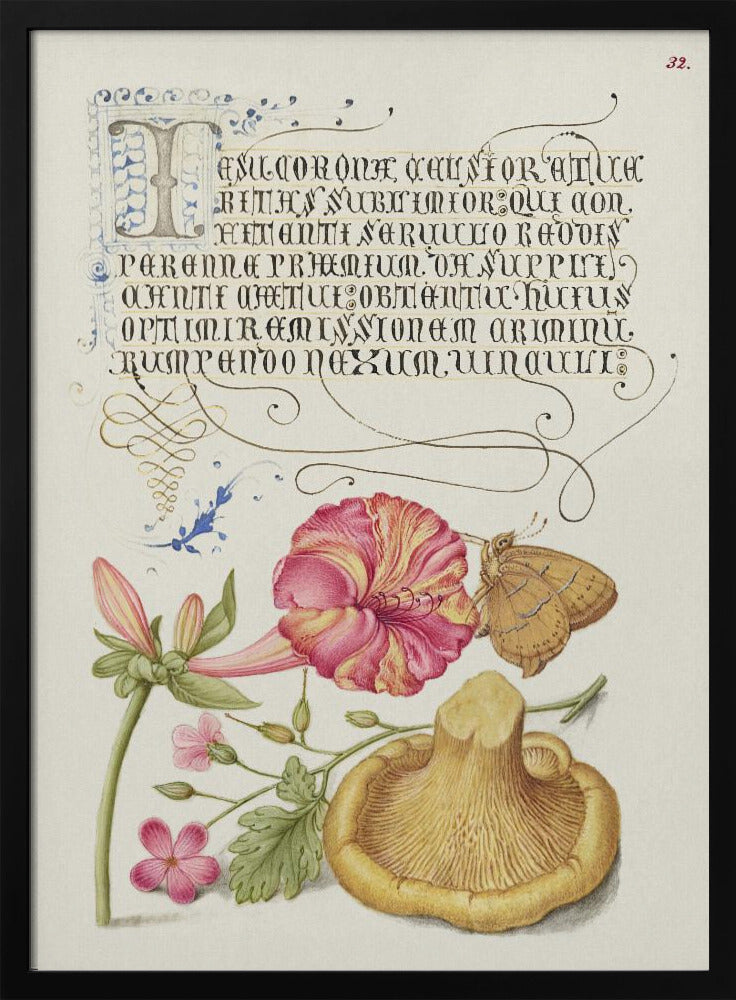 32.
IESU CORONÆ CELSIOR ET UE
RITAS SUBLIMIOR: QUI CON
FITENTI SERUULO REDDIS
PERENNE PRÆMIUM. DA SUPPLI
CANTI CÆTUI: OBTENTU HUIUS
OPTIMI REMISSIONEM CRIMINU.
RUMPENDO NEXUM, UINCULI: